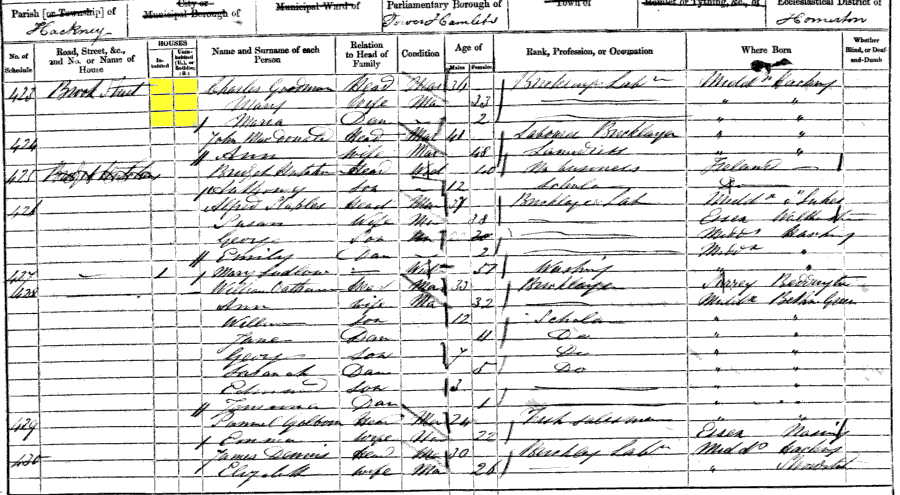 Parish [or Township] of
Hackney
City or Municipal Borough of
Municipal Ward of
Parliamentary Borough of
Tower Hamlets
Town of
Hamlet or Tything, &c., of
Ecclesiastical District of
Homerton
No. of Schedule
Road, Street, &c., and No. or Name of House
HOUSES
Inhabited
Uninhabited (U.), or Building (B.)
Name and Surname of each Person
Relation to Head of Family
Condition
Age of
Males
Females
Rank, Profession, or Occupation
Where Born
Whether Blind, or Deaf-and-Dumb
423 Brook Street Charles Goodman Head Mar 34 Bricklayer Labr Middx Hackney
Mary Wife Ma 33 " "
Maria Dau 2 " "
424 John Macdonald Head Mar 41 Labourer Bricklayer " "
Ann Wife Mar 48 Laundress " "
425 Bridget Head Wid 40 No business Ireland
Anthony Son 12 Scholar Do
426 Alfred Head Mar 37 Bricklayer Lab Middx St Lukes
Susan Wife Ma 38 Essex
George Son Un 20 Middx Hackney
Emily Dau 2 Middx "
427 1 Mary Ludlow Wid 57 Washing " "
428 William Head Ma 33 Bricklayer Surrey Beddington
Ann Wife Ma 32 Middx Bethnal Green
William Son 12 Scholar " "
Jane Daur 11 Do " "
George Son 7 Do " "
Sarah Dau 5 Do " "
Edmund Son 3 " "
Dau 1 " "
429 Head Mar 24 Fish salesman
Emma Wife Ma 22 Essex Nazing
430 James Dennis Head Ma 30 Bricklay Labr Middx Hackney
Elizabeth Wife Ma 26 "